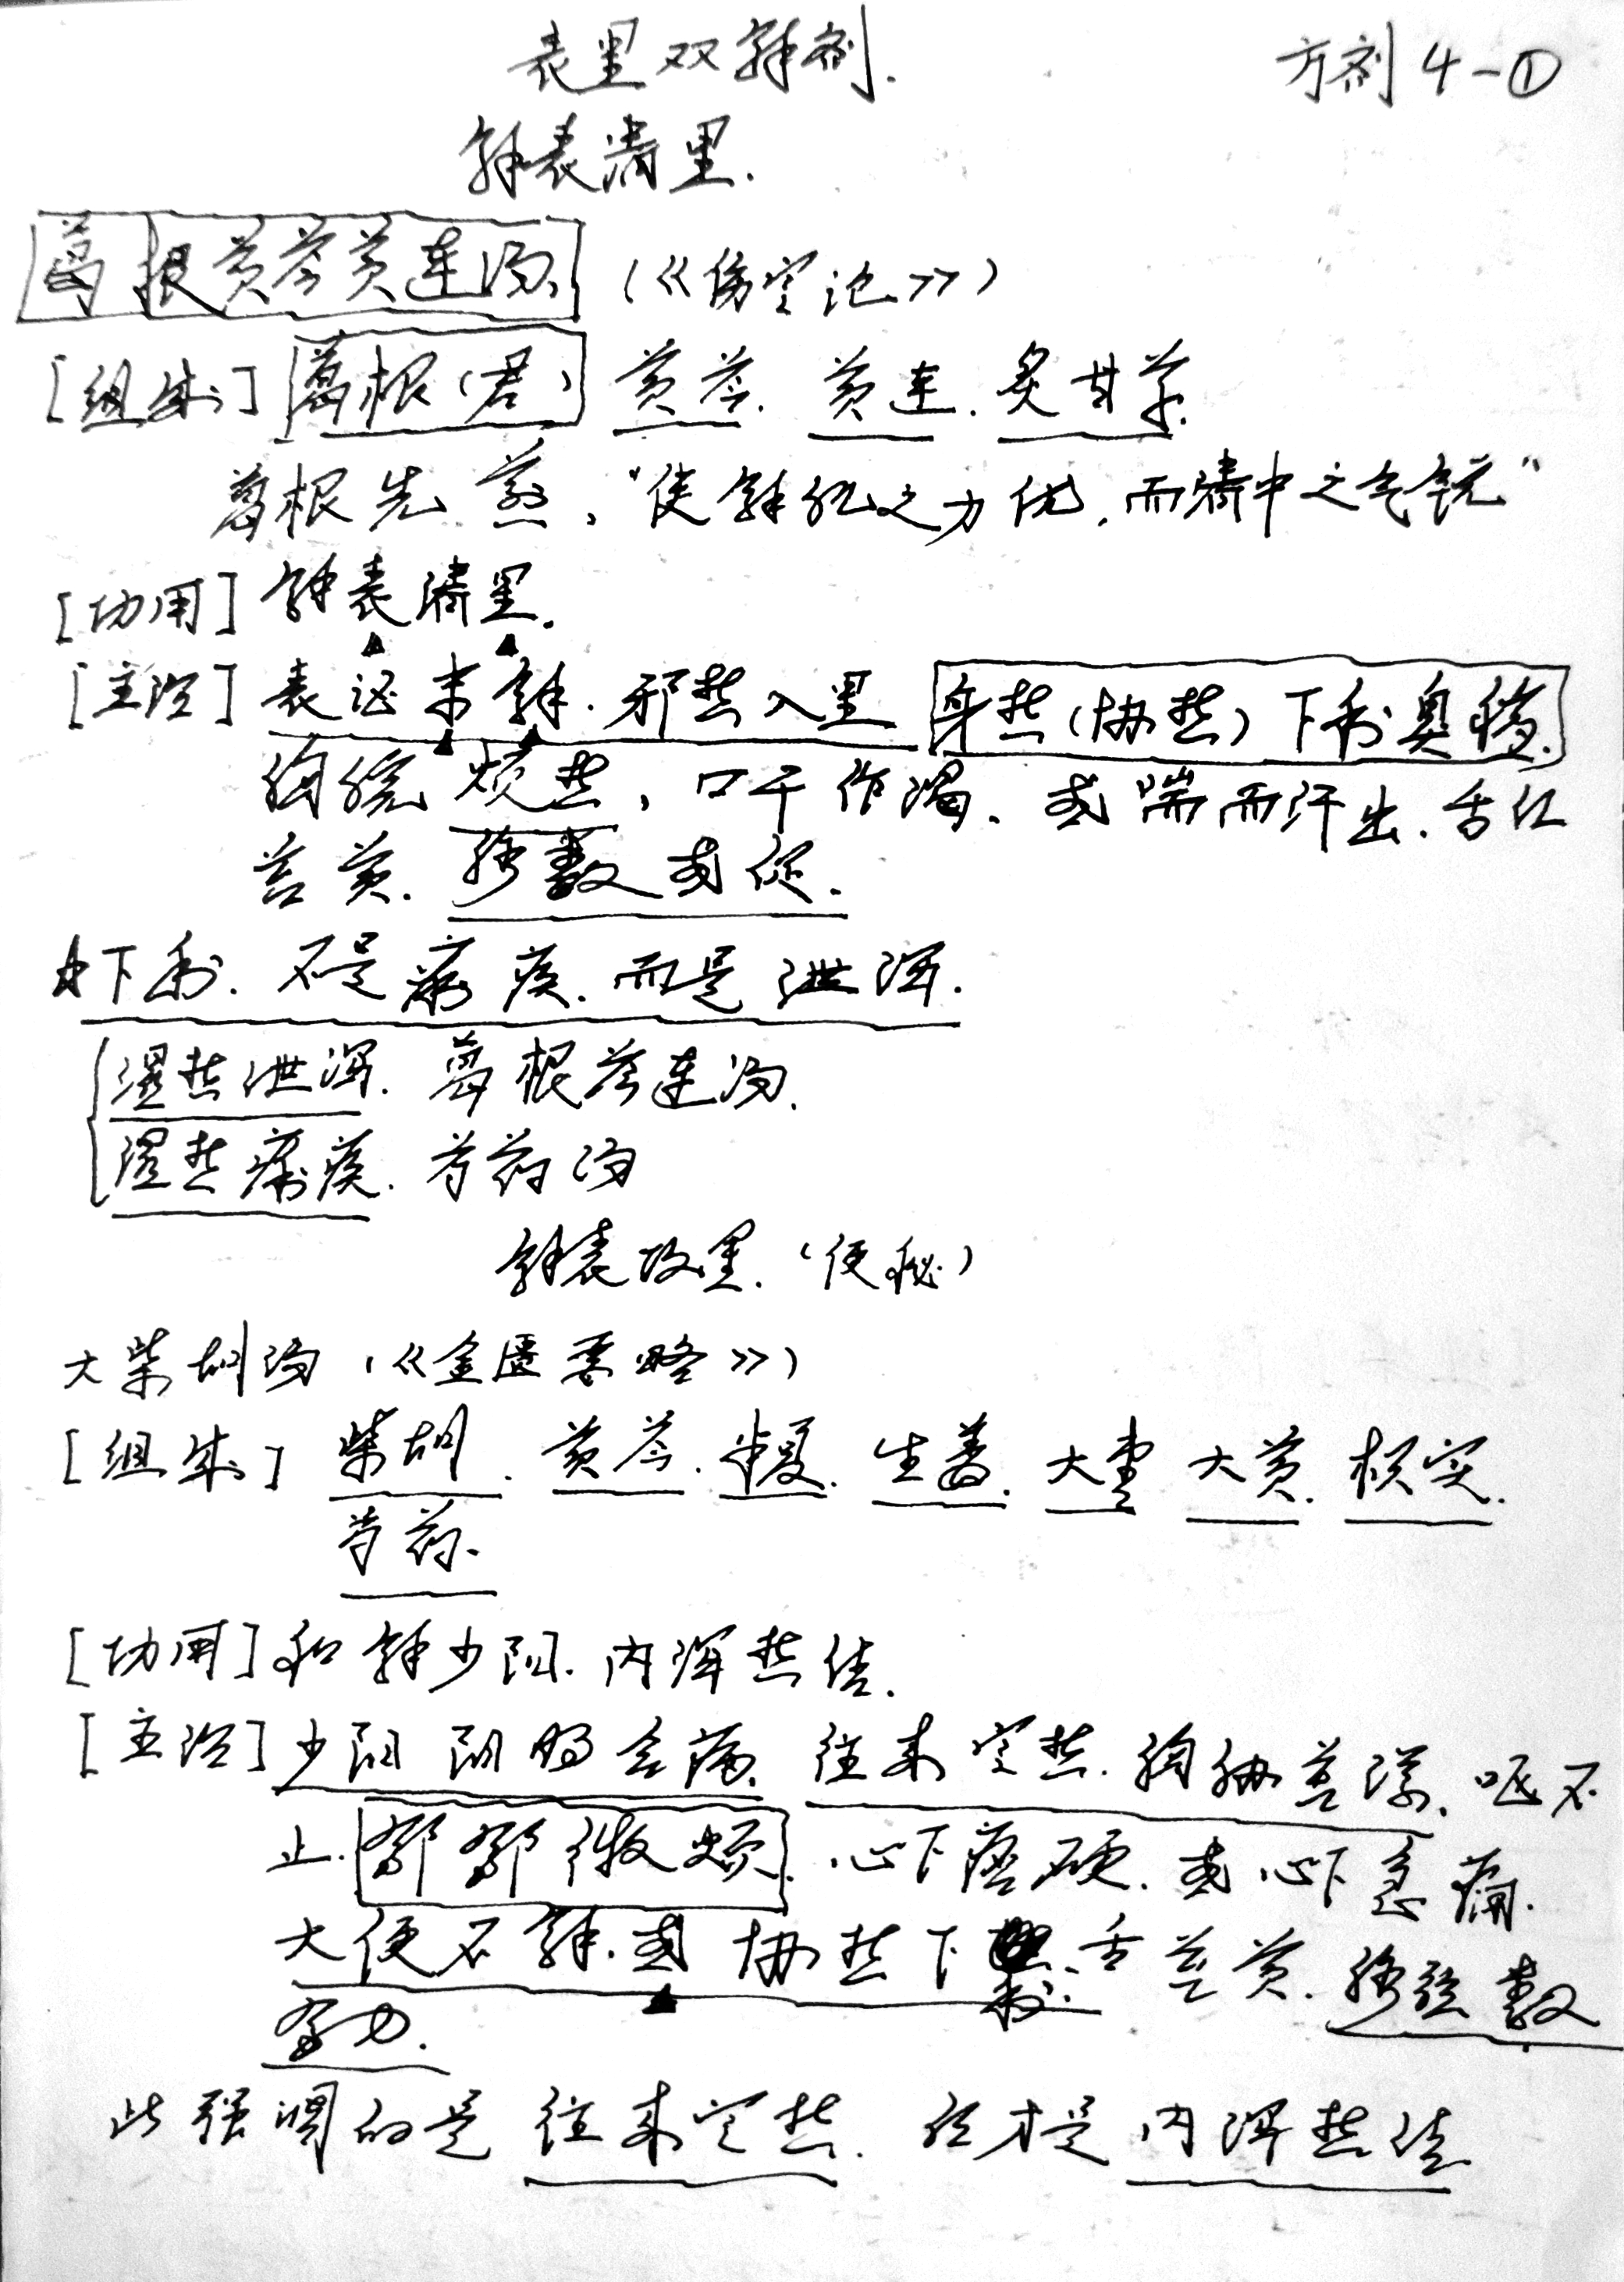 表里双解剂.
方剂4-①
解表清里.
葛根黄芩黄连汤 (《伤寒论》)
[组成] 葛根(君) 黄芩. 黄连. 炙甘草.
葛根先煎, "使解肌之力优, 而清中之气锐"
[功用] 解表清里.
[主治] 表证未解. 邪热入里 身热(协热)下利臭秽.
胸脘烦热, 口干作渴. 或喘而汗出. 舌红
苔黄. 脉数或促.
☆下利. 不是痢疾. 而是泄泻.
湿热泄泻. 葛根芩连汤.
湿热痢疾. 芍药汤
解表攻里. (便秘)
大柴胡汤 (《金匮要略》)
[组成] 柴胡. 黄芩. 半夏. 生姜. 大枣 大黄. 枳实.
芍药.
[功用] 和解少阳. 内泻热结.
[主治] 少阳阳明合病. 往来寒热. 胸胁苦满. 呕不
止. 郁郁微烦. 心下痞硬. 或心下急痛.
大便不解. 或协热下利. 舌苔黄. 脉弦数
有力.
此强调的是往来寒热. 后才是内泻热结